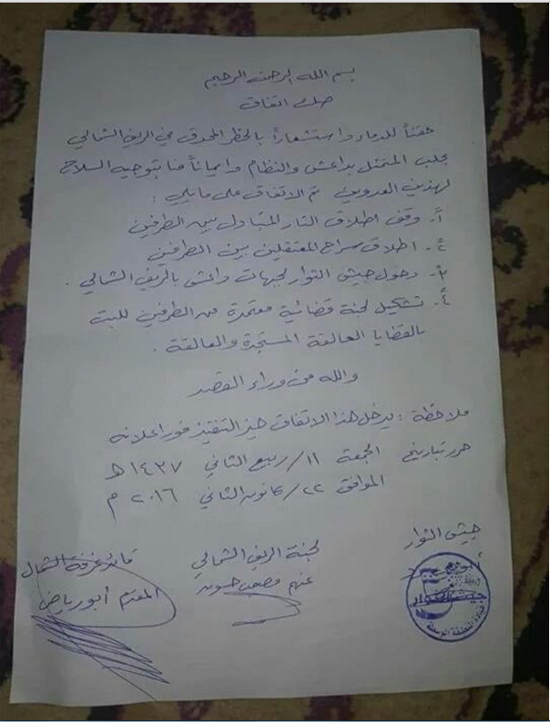 بسم الله الرحمن الرحيم
صك اتفاق
حقناً للدماء واستشعاراً بالخطر المحدق في الريف الشمالي
بحلب المتمثل بداعش والنظام وايماناً منا بتوجيه السلاح
لهذين العدوين تم الاتفاق على مايلي :
١- وقف اطلاق النار المتبادل بين الطرفين
٢- اطلاق سراح المعتقلين بين الطرفين
٣- دخول جيش الثوار لجبهات داعش بالريف الشمالي .
٤- تشكيل لجنة قضائية معتمدة من الطرفين للبت
بالقضايا العالقة المستجدة والعالقة .
والله من وراء القصد
ملاحظة : يدخل هذا الاتفاق حيز التنفيذ فور اعلانه
حرر بتاريخ الجمعة ١١/ ربيع الثاني ١٤٣٧ هـ
الموافق ٢٢/ كانون الثاني ٢٠١٦ م
جيش الثوار
لجنة الريف الشمالي
عنهم
قائد غرفة الشمال
المقدم أبو رياض
جيش الثوار